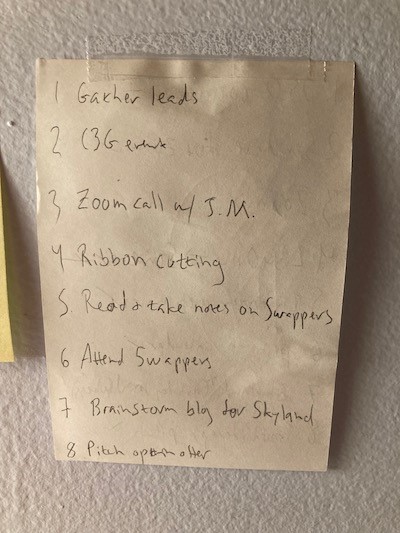 1 Gather leads
2 C3G event
3 Zoom call w/ J.M.
4 Ribbon cutting
5. Read & take notes on Swappers
6 Attend Swappers
7 Brainstorm blog for Skyland
8 Pitch